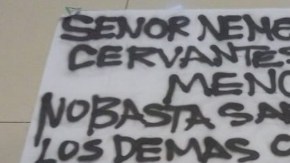 SEÑOR NEME
CERVANTES
MENC
NO BASTA SA
LOS DEMAS